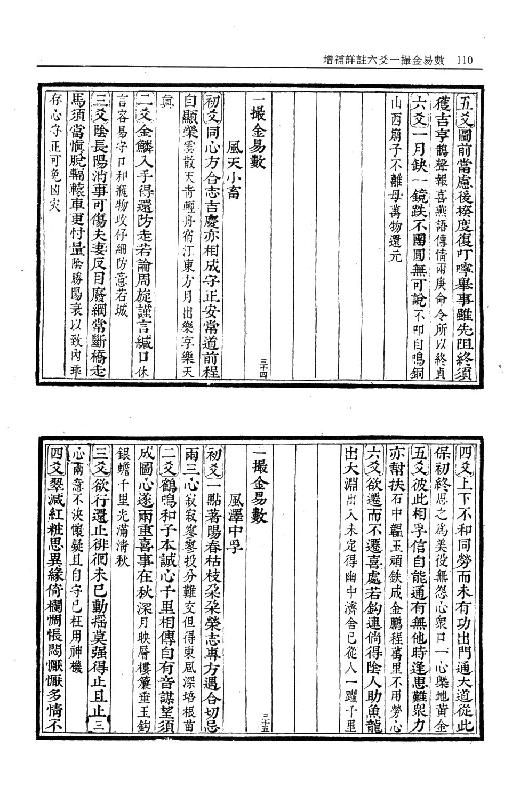 增補詳註六爻一撮金易數 110
五爻圖前當慮後揆度復叮嚀畢事雖先阻終須
獲吉亨鵲聲報喜燕語傳情兩庚命令所以終貞
六爻一月缺一鏡跌不團圓無可說不叩自鳴銅
山西崩子不離母萬物還元
一撮金易數 三十四
風天小畜
初爻同心方合志吉慶亦相成守正安常道前程
自顯榮雲散天青輕舟寄江東方月出樂孚樂天
真
二爻金鱗入手得還防走若論周旋謹言緘口休
言容易守口和瓶物改仔細防意若城
三爻陰長陽消事可傷夫妻反目廢綱常斷橋走
馬須當慎脫輻轅車更忖量陰勝陽衰以致內乖
存心守正可免凶灾
四爻上下不和同勞而未有功出門通大道從此
保初終思之為美役無怨心衆口一心樂地黃金
五爻彼此相孚信自能通有無他時逢患難衆力
亦幫扶石中韞玉頑鉄成金鵬程萬里不用勞心
六爻欲遷而不遷喜處若鈎連倘得陰人助魚龍
出大淵出入未定得幽中濟會已從人一躍千里
一撮金易數 三十五
風澤中孚
初爻一點著陽春枯枝朵朵榮志專方遇合切忌
兩三心寂寂寥寥投分難交但得東風深培根苗
二爻鶴鳴和子本誠心千里相傳自有音謀望須
成圖心遂兩重喜事在秋深月映層樓簾垂玉鈎
銀蟾千里光滿清秋
三爻欲行還止徘徊未已動搖莫强得止且止三
心兩意不決懷疑且自守己枉用神機
四爻翠減紅粧思異緣倚欄惆悵悶懨懨多情不